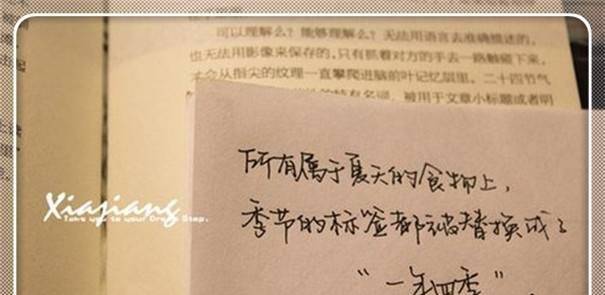 可以理解么?能够理解么?无法用语言去准确描述的,
也无法用影像来保存的,只有抓着对方的手去一路触碰下来,
才会从指尖的纹理一直攀爬进脑前叶记忆层里。二十四节气
特有名词,被用于文章小标题或者明
所有属于夏天的食物上,
季节的标签都被替换成了
“一年四季”
Xiasiang
Take you to your Drea Step.